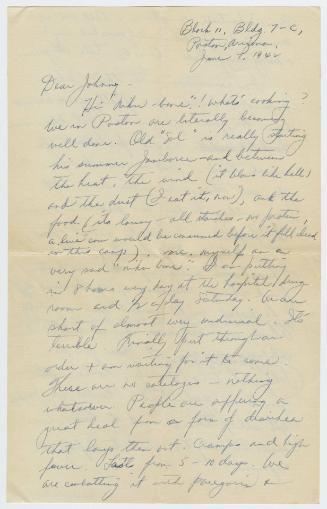 Block 11, Bldg. 7-C,
Poston, Arizona.
June 7, 1942
Dear Johnny -
Hi "                  "! What's cooking?
We in Poston are literally becoming
well done. Old "Sol" is really starting
his summer Jamboree - and between
the heat, the wind (it blows like hell)
and the dust (I eat it, now), and the
food (its lousy - all starches - no protein,
a live cow would be consumed before it fell dead
in this camp), me, myself am a
very sad               . I am putting
in 8 hours every day at the hospital drug
room and 1/2 day Saturday. We are
short of almost every medicinal. It's
terrible. Finally put through an
order + am waiting for it to come.
There are no catalogs - nothing
whatsoever. People are suffering a
great deal from a form of diarrhea
that lays them out. Cramps and high
fever. Lasts from 5 - 10 days. We
are combatting it with paregoric &